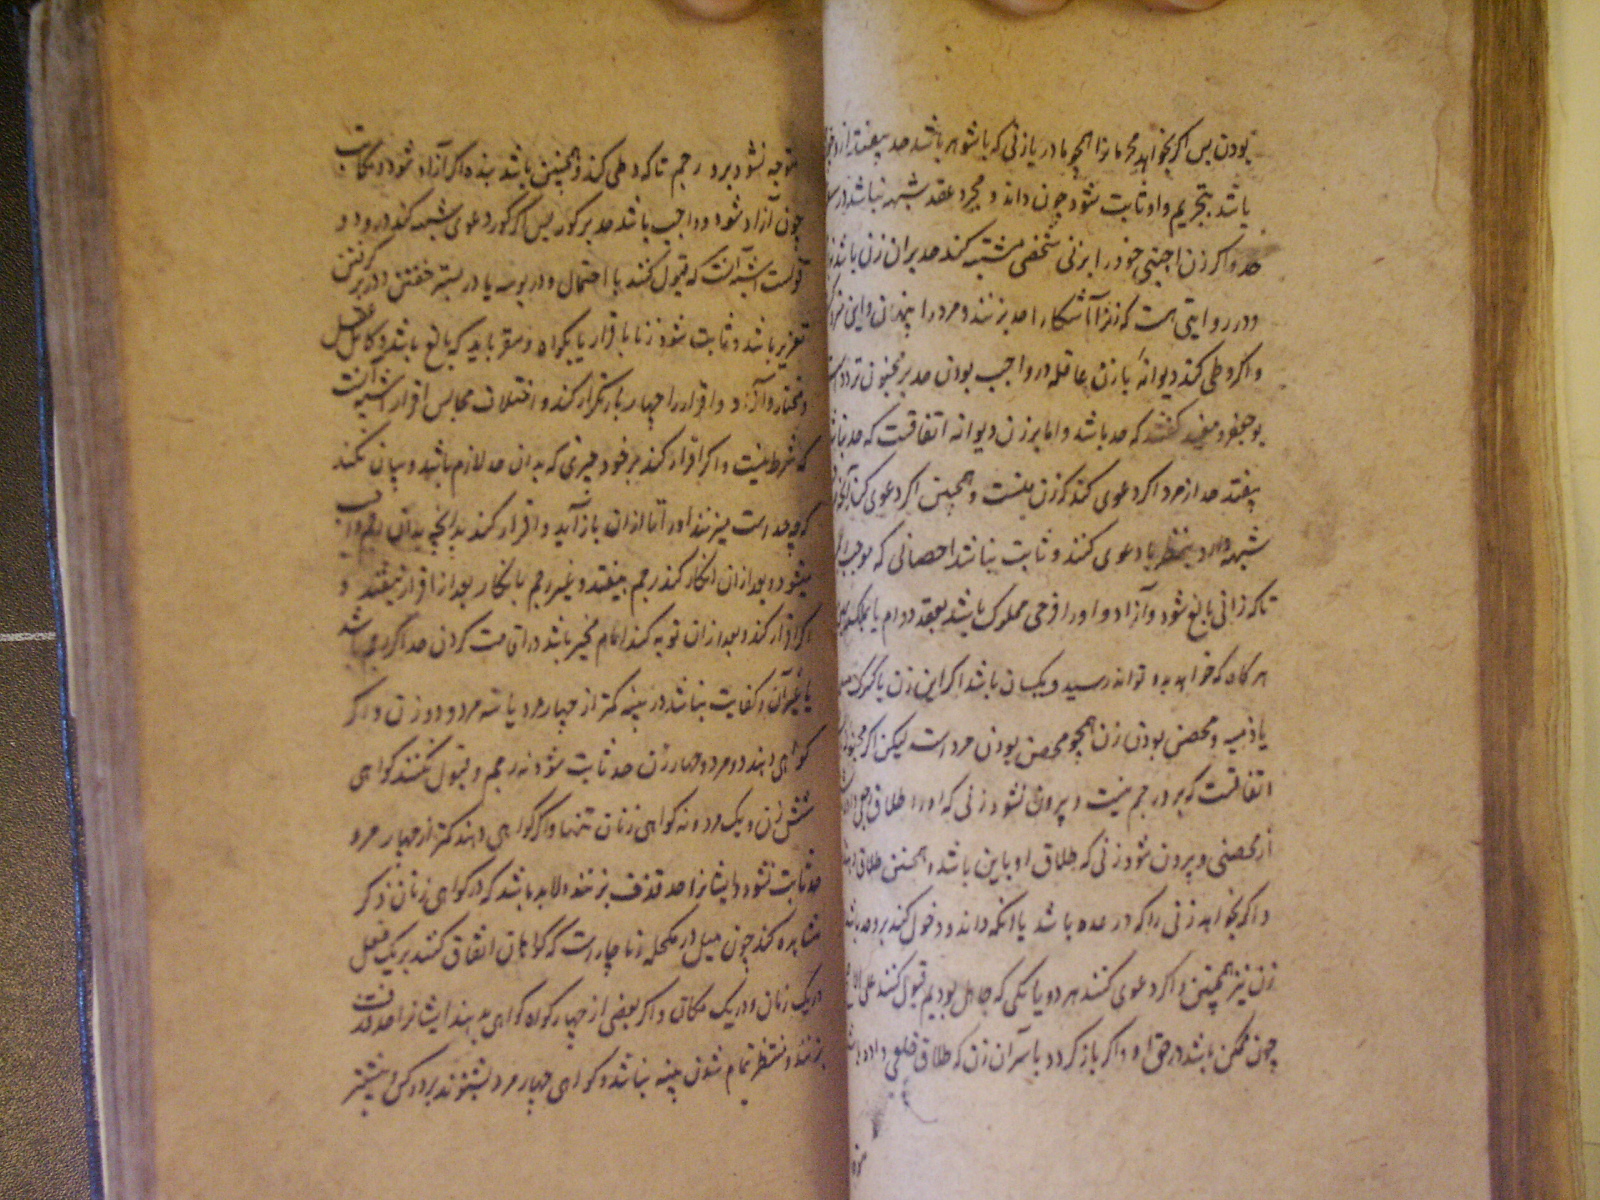 بودن پس اگر بخواهد محرمانرا همچو مادر یا زنی که با شوهر باشد حد بیفتد از
باشد بتحریم و او ثابت شود چون داند و مجرد عقد شبهه نباشد در
حد و اگر زن اجنبی خود را بر شخصی مشتبه کند حد بر ان زن باشد
و در روایتی است که زنرا آشکارا حد بزنند و مرد را پنهان و این
و اگر وطی کند دیوانهٔ با زن عاقله در واجب بودن حد بر مجنون تردد
بوجعفر و مفید گفتند که حد باشد و اما بر زن دیوانه اتفاقست که حد
بیفتد حد از مرد اگر دعوی کند که زن منست و همچنین اگر دعوی کند
شبهه دارد بنظر با دعوی کننده و ثابت نباشد احصانی که موجب
تا که زانی بالغ شود و آزاد و او را فرجی مملوک باشد بعقد دوام یا بملک
هر کاه که خواهد بدو تواند رسید و یکسان باشد اگر این زن یا کنیزک
یا ذمیه و محصن بودن زن همچو محصن بودن مرد است لیکن اگر
اتفاقست که برو رجم نیست و بیرون نشود زنی که او را طلاق رجعی
از محصنی و بیرون شود زنی که طلاق او باین باشد و همچنین طلاق
و اگر بخواهد زنی را که در عده باشد با انکه داند و دخول کند برو حد باشد
زن نیز همچنین و اگر دعوی کنند هر دو یا یکی که جاهل بودیم قبول کنند علی
چون ممکن باشد در حق او و اگر باز گردد با سر آن زن که طلاق خلعی داده
متوجه نشود برو رجم تا که وطی کند و همچنین باشد بنده اگر آزاد شود و مکاتب
چون آزاد شود و واجب باشد حد بر کور پس اگر کور دعوی شبهه کند درو دو
قولست اشبه آنست که قبول کنند با احتمال و در بوسه یا در بستر خفتن و در بر گرفتن
تعزیر باشد و ثابت شود زنا باقرار یا بکواه و مقر باید که بالغ باشد و کامل عقل
و مختار و آزاد و اقرار را چهار بار تکرار کند و اختلاف مجالس اقرار اشبه آنست
که شرط نیست و اگر اقرار کند بر خود چیزی که بدان حد لازم باشد و بیان نکند
که چه حد است میزنند او را تا از ان باز آید و اقرار کند بدانچه بدان رجم واجب
میشود و بعد از ان انکار کند رجم بیفتد و غیر رجم بانکار بعد از اقرار نیفتد و
اگر اقرار کند و بعد از ان توبه کند امام مخیر باشد در اقامت کردن حد اگر رجم باشد
یا غیر آن و کفایت نباشد در بینه کمتر از چهار مرد یا سه مرد و دو زن و اگر
گواهی دهند دو مرد و چهار زن حد ثابت شود نه رجم و قبول نکنند کواهی
شش زن و یک مرد و نه کواهی زنان تنها و اگر گواهی دهند کمتر از چهار مرد
حد ثابت نشود و ایشانرا حد قذف بزنند و لابد باشد که در کواهی زنان ذکر
مشاهده کند چون میل در مکحله و ناچار است که گواهان اتفاق کنند بر یک فعل
در یک زمان و در یک مکان و اگر بعضی از چهار کواه کواهی بدهند ایشانرا حد قذف
بزنند و منتظر تمام شدن بینه نباشد و کواهی چهار مرد بشنوند بر دو کس و بیشتر